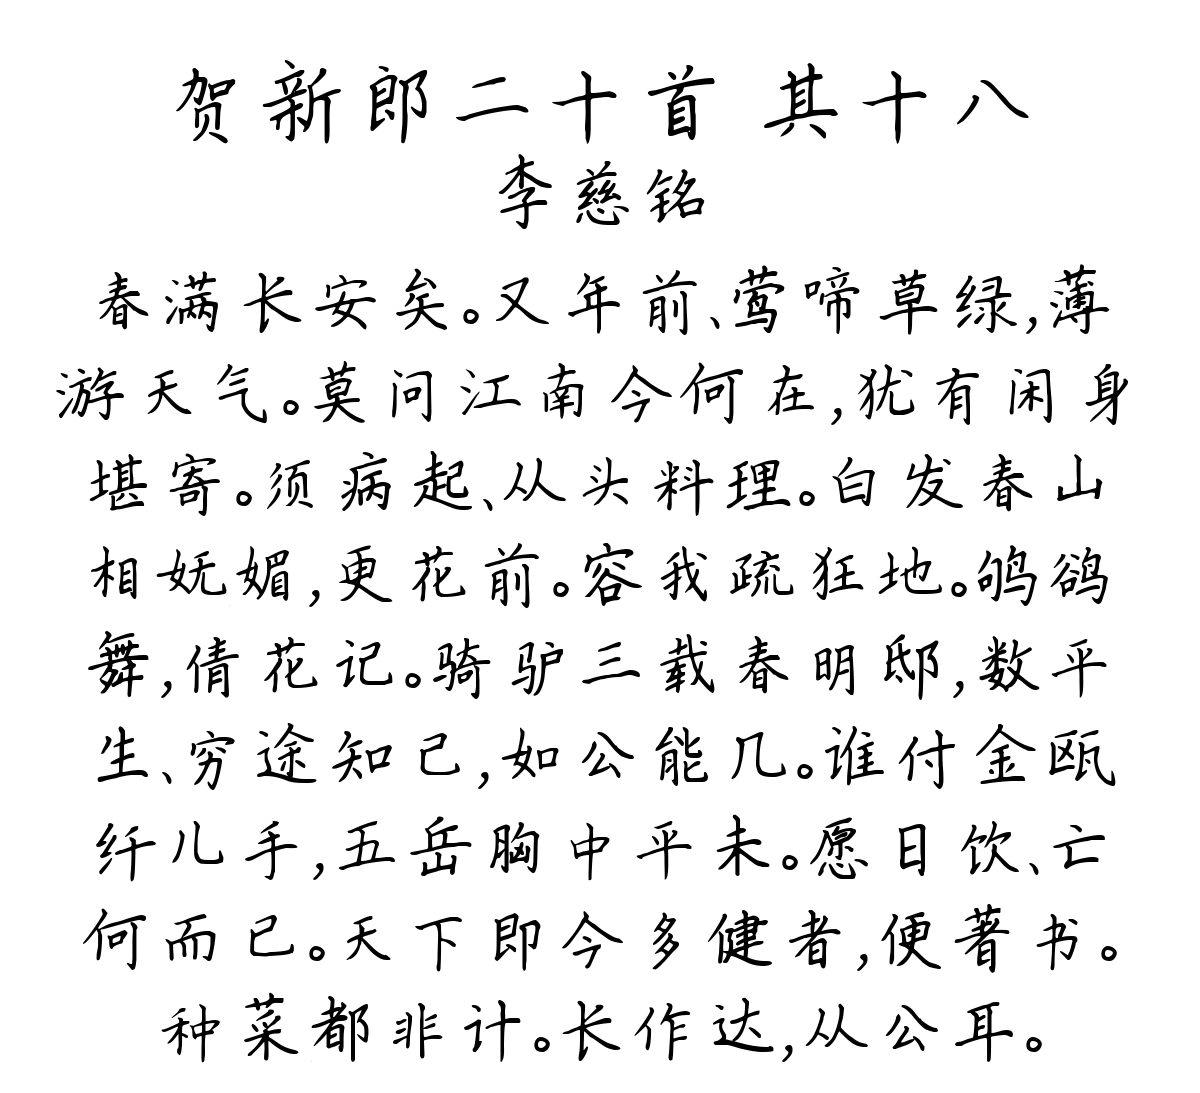 贺新郎二十首 其十八
李慈铭
春满长安矣。又年前、莺啼草绿,薄
游天气。莫问江南今何在,犹有闲身
堪寄。须病起、从头料理。白发春山
相妩媚,更花前。容我疏狂地。鸲鹆
舞,倩花记。骑驴三载春明邸,数平
生、穷途知己,如公能几。谁付金瓯
纤儿手,五岳胸中平未。愿日饮、亡
何而已。天下即今多健者,便著书。
种菜都非计。长作达,从公耳。